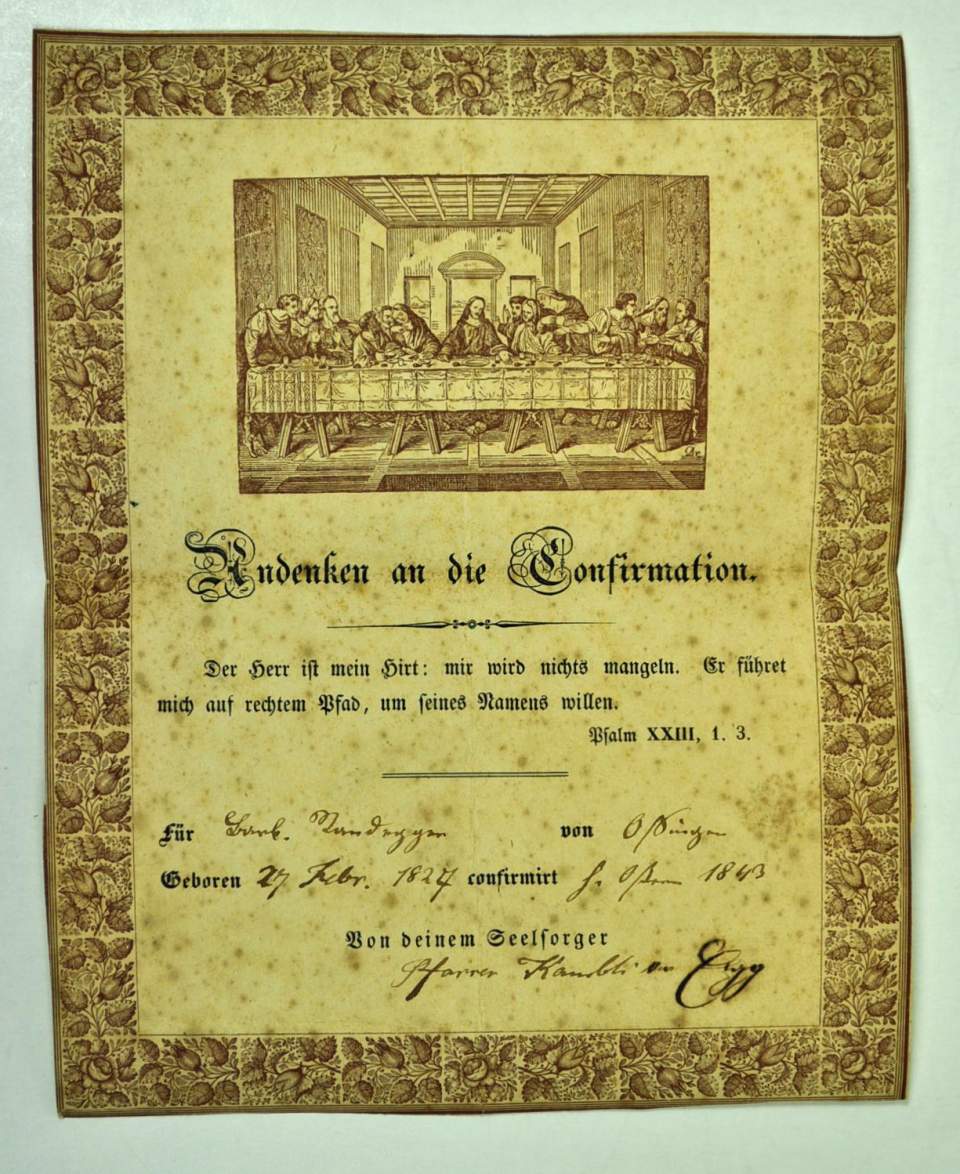 Andenken an die Confirmation.
Der Herr ist mein Hirt: mir wird nichts mangeln. Er führet
mich auf rechtem Pfad, um seines Namens willen.
Psalm XXIII, 1. 3.
Für Barb. Landegger von Oßingen
Geboren 27 Febr. 1827 confirmirt Ostern 1843
Von deinem Seelsorger
Pfarrer Kambli